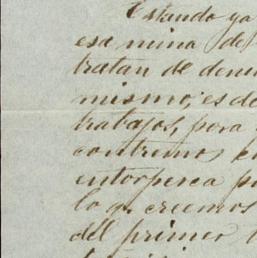 Estando ya
esa mina de
tratan de denu
mismo; es de
trabajos, para
contremos en
entorpesca p
lo q. creemos
del primer